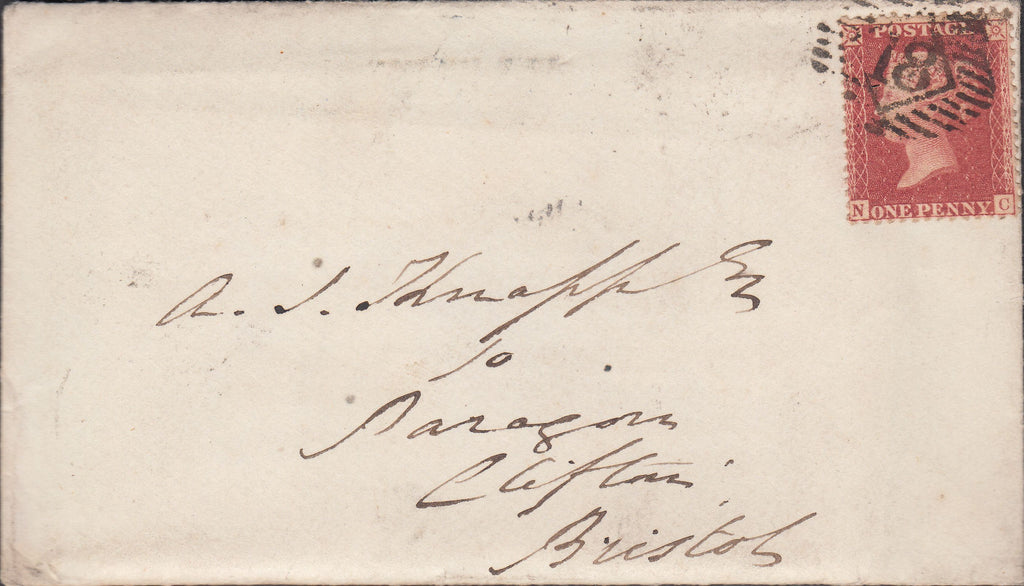 POSTAGE
18
N ONE PENNY C
A. J. Knapp Esq
10
Paragon
Clifton
Bristol